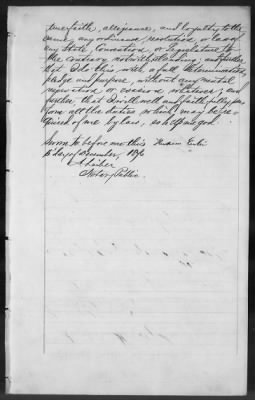 true faith, allegiance, and loyalty to the
same, any ordinance, resolution or law of
any State, Convention or Legislature to
the contrary notwithstanding; and further
that I do this with a full determination,
pledge and purpose, without any mental
reservation or evasion whatsoever; and
further, that I will well and faithfully per-
form all the duties which may be re-
quired of me by law, so help me god.
Sworn to before me this
day of December,
Notary Public.